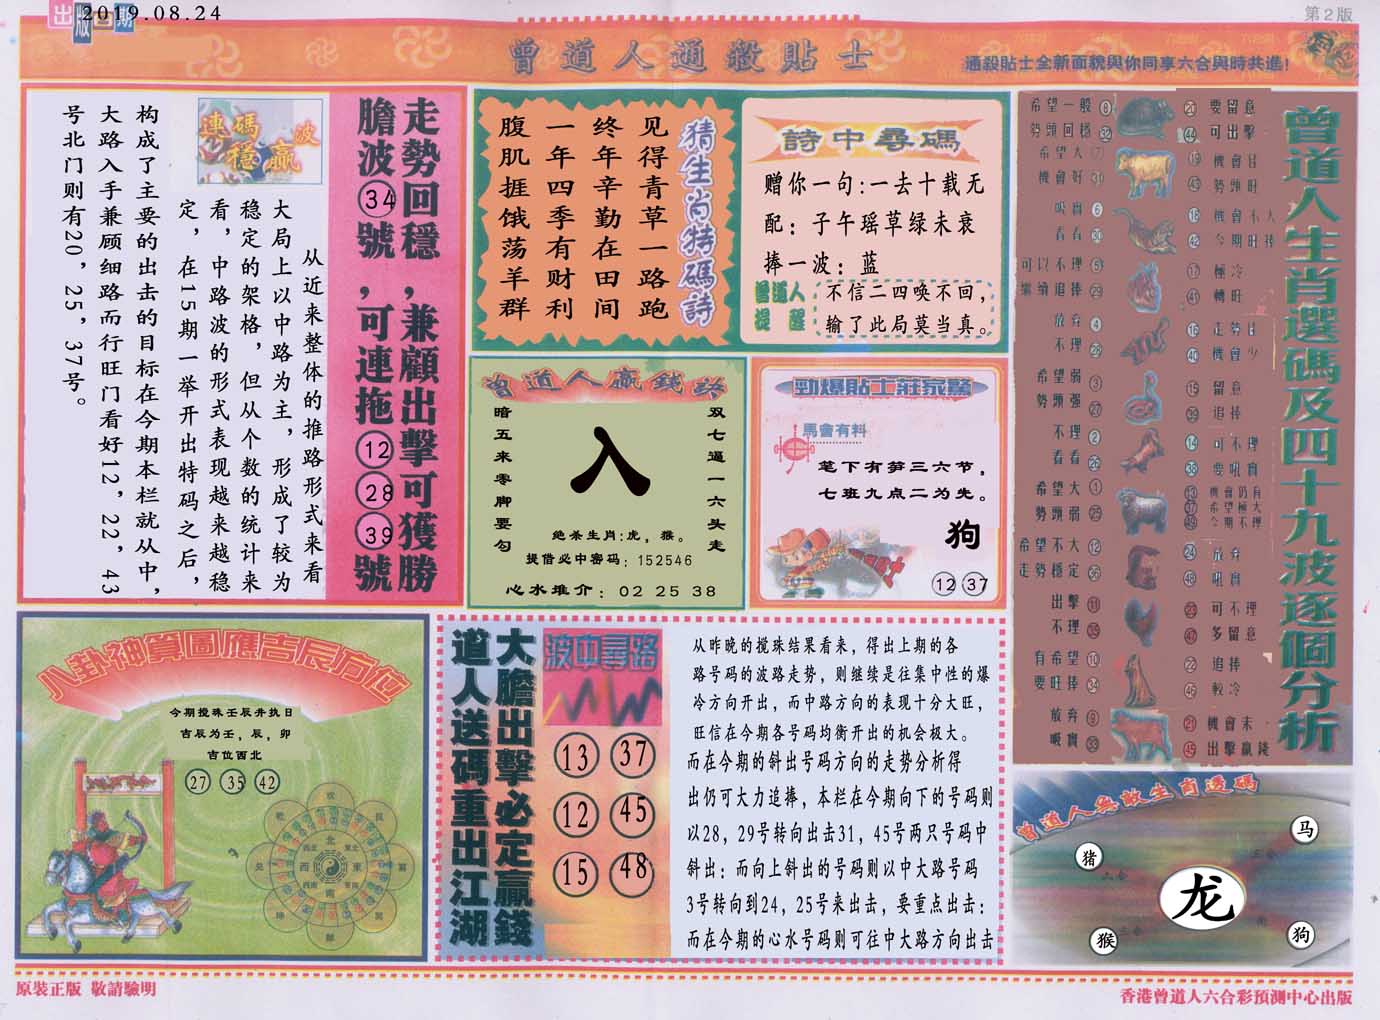 出版日期
2019.08.24
第2版
曾道人通殺貼士
通殺貼士全新面貌與你同享六合與時共進!
走勢回穩,兼顧出擊可獲勝
膽波34號,可連拖12 28 39號
連碼波
穩贏
从近来整体的推路形式来看
大局上以中路为主,形成了较为
稳定的架格,但从个数的统计来
看,中路波的形式表现越来越稳
定,在15期一举开出特码之后,
构成了主要的出击的目标在今期本栏就从中,
大路入手兼顾细路而行旺门看好12,22,43
号北门则有20,25,37号。
猜生肖特碼詩
见得青草一路跑
终年辛勤在田间
一年四季有财利
腹肌捱饿荡羊群
詩中尋碼
赠你一句:一去十载无
配:子午瑶草绿未衰
捧一波:蓝
曾道人
提醒
不信二四唤不回,
输了此局莫当真。
曾道人贏錢訣
双七逼一六头走
暗五来零脚要勾
入
绝杀生肖:虎,猴。
提借必中密码:152546
心水推介:02 25 38
勁爆貼士莊家驚
馬會有料
笔下有笋三六节,
七班九点二为先。
狗
12 37
曾道人生肖選碼及四十九波逐個分析
希望一般 8 20 要留意
勢頭回穩 32 44 可出擊
希望大 7 19 機會佳
機會好 31 43 勢頭旺
吸實 6 18 機會不大
看看 30 42 今期旺捧
可以不理 5 17 極冷
繼續追捧 29 41 轉旺
放弃 4 16 走勢佳
不理 28 40 機會少
希望弱 3 15 留意
勢頭强 27 39 追捧
不理 2 14 可不理
看看 26 38 要吼實
希望大 1 13 機會仍有
37 希望極大
勢頭弱 25 49 今期不理
希望不大 12 24 放弃
走勢穩定 36 48 吼實
出擊 11 23 可不理
不理 35 47 多留意
有希望 10 22 追捧
要旺捧 34 46 較冷
放弃 9 21 機會未
吸實 33 45 出擊贏錢
八卦神算圖應吉辰方位
今期搅珠壬辰井执日
吉辰为壬,辰,卯
吉位西北
27 35 42
北
西
東
南
大膽出擊必定贏錢
道人送碼重出江湖
波中尋路
13 37
12 45
15 48
从昨晚的搅珠结果看来,得出上期的各
路号码的波路走势,则继续是往集中性的爆
冷方向开出,而中路方向的表现十分大旺,
旺信在今期各号码均衡开出的机会极大。
而在今期的斜出号码方向的走势分析得
出仍可大力追捧,本栏在今期向下的号码则
以28,29号转向出击31,45号两只号码中
斜出:而向上斜出的号码则以中大路号码
3号转向到24,25号来出击,要重点出击:
而在今期的心水号码则可往中大路方向出击
曾道人無敵生肖透碼
马
猪
龙
猴
狗
原裝正版 敬請驗明
香港曾道人六合彩預測中心出版